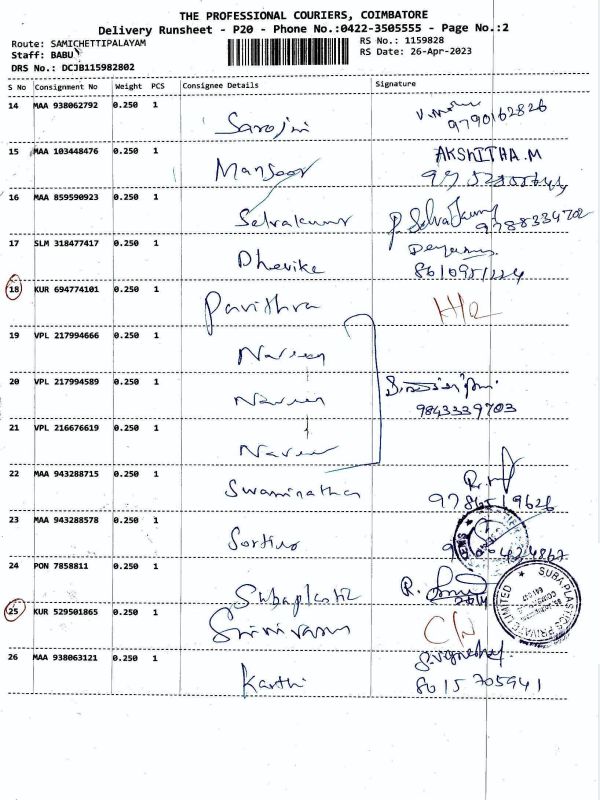 THE PROFESSIONAL COURIERS, COIMBATORE
Delivery Runsheet - P20 - Phone No.:0422-3505555 - Page No.:2
Route: SAMICHETTIPALAYAM
RS No.: 1159828
Staff: BABU
RS Date: 26-Apr-2023
DRS No.: DCJB115982802
S No Consignment No Weight PCS Consignee Details Signature
14 MAA 938062792 0.250 1 Sarojni
9790162826
15 MAA 103448476 0.250 1 Mansoor AKSHITHA.M
16 MAA 859590923 0.250 1 Selvakumar P. Selvakumar
9788339702
17 SLM 318477417 0.250 1 Dhevike
8610951224
18 KUR 694774101 0.250 1 Pavithra
19 VPL 217994666 0.250 1 Naveen
20 VPL 217994589 0.250 1 Naveen
9843339703
21 VPL 216676619 0.250 1 Naveen
22 MAA 943288715 0.250 1 Swaminathan
9786519626
23 MAA 943288578 0.250 1
24 PON 7858811 0.250 1 Subaplastic
SUBA PLASTICS PRIVATE LIMITED
25 KUR 529501865 0.250 1 Srinivasan
26 MAA 938063121 0.250 1 Karthi
8015705941